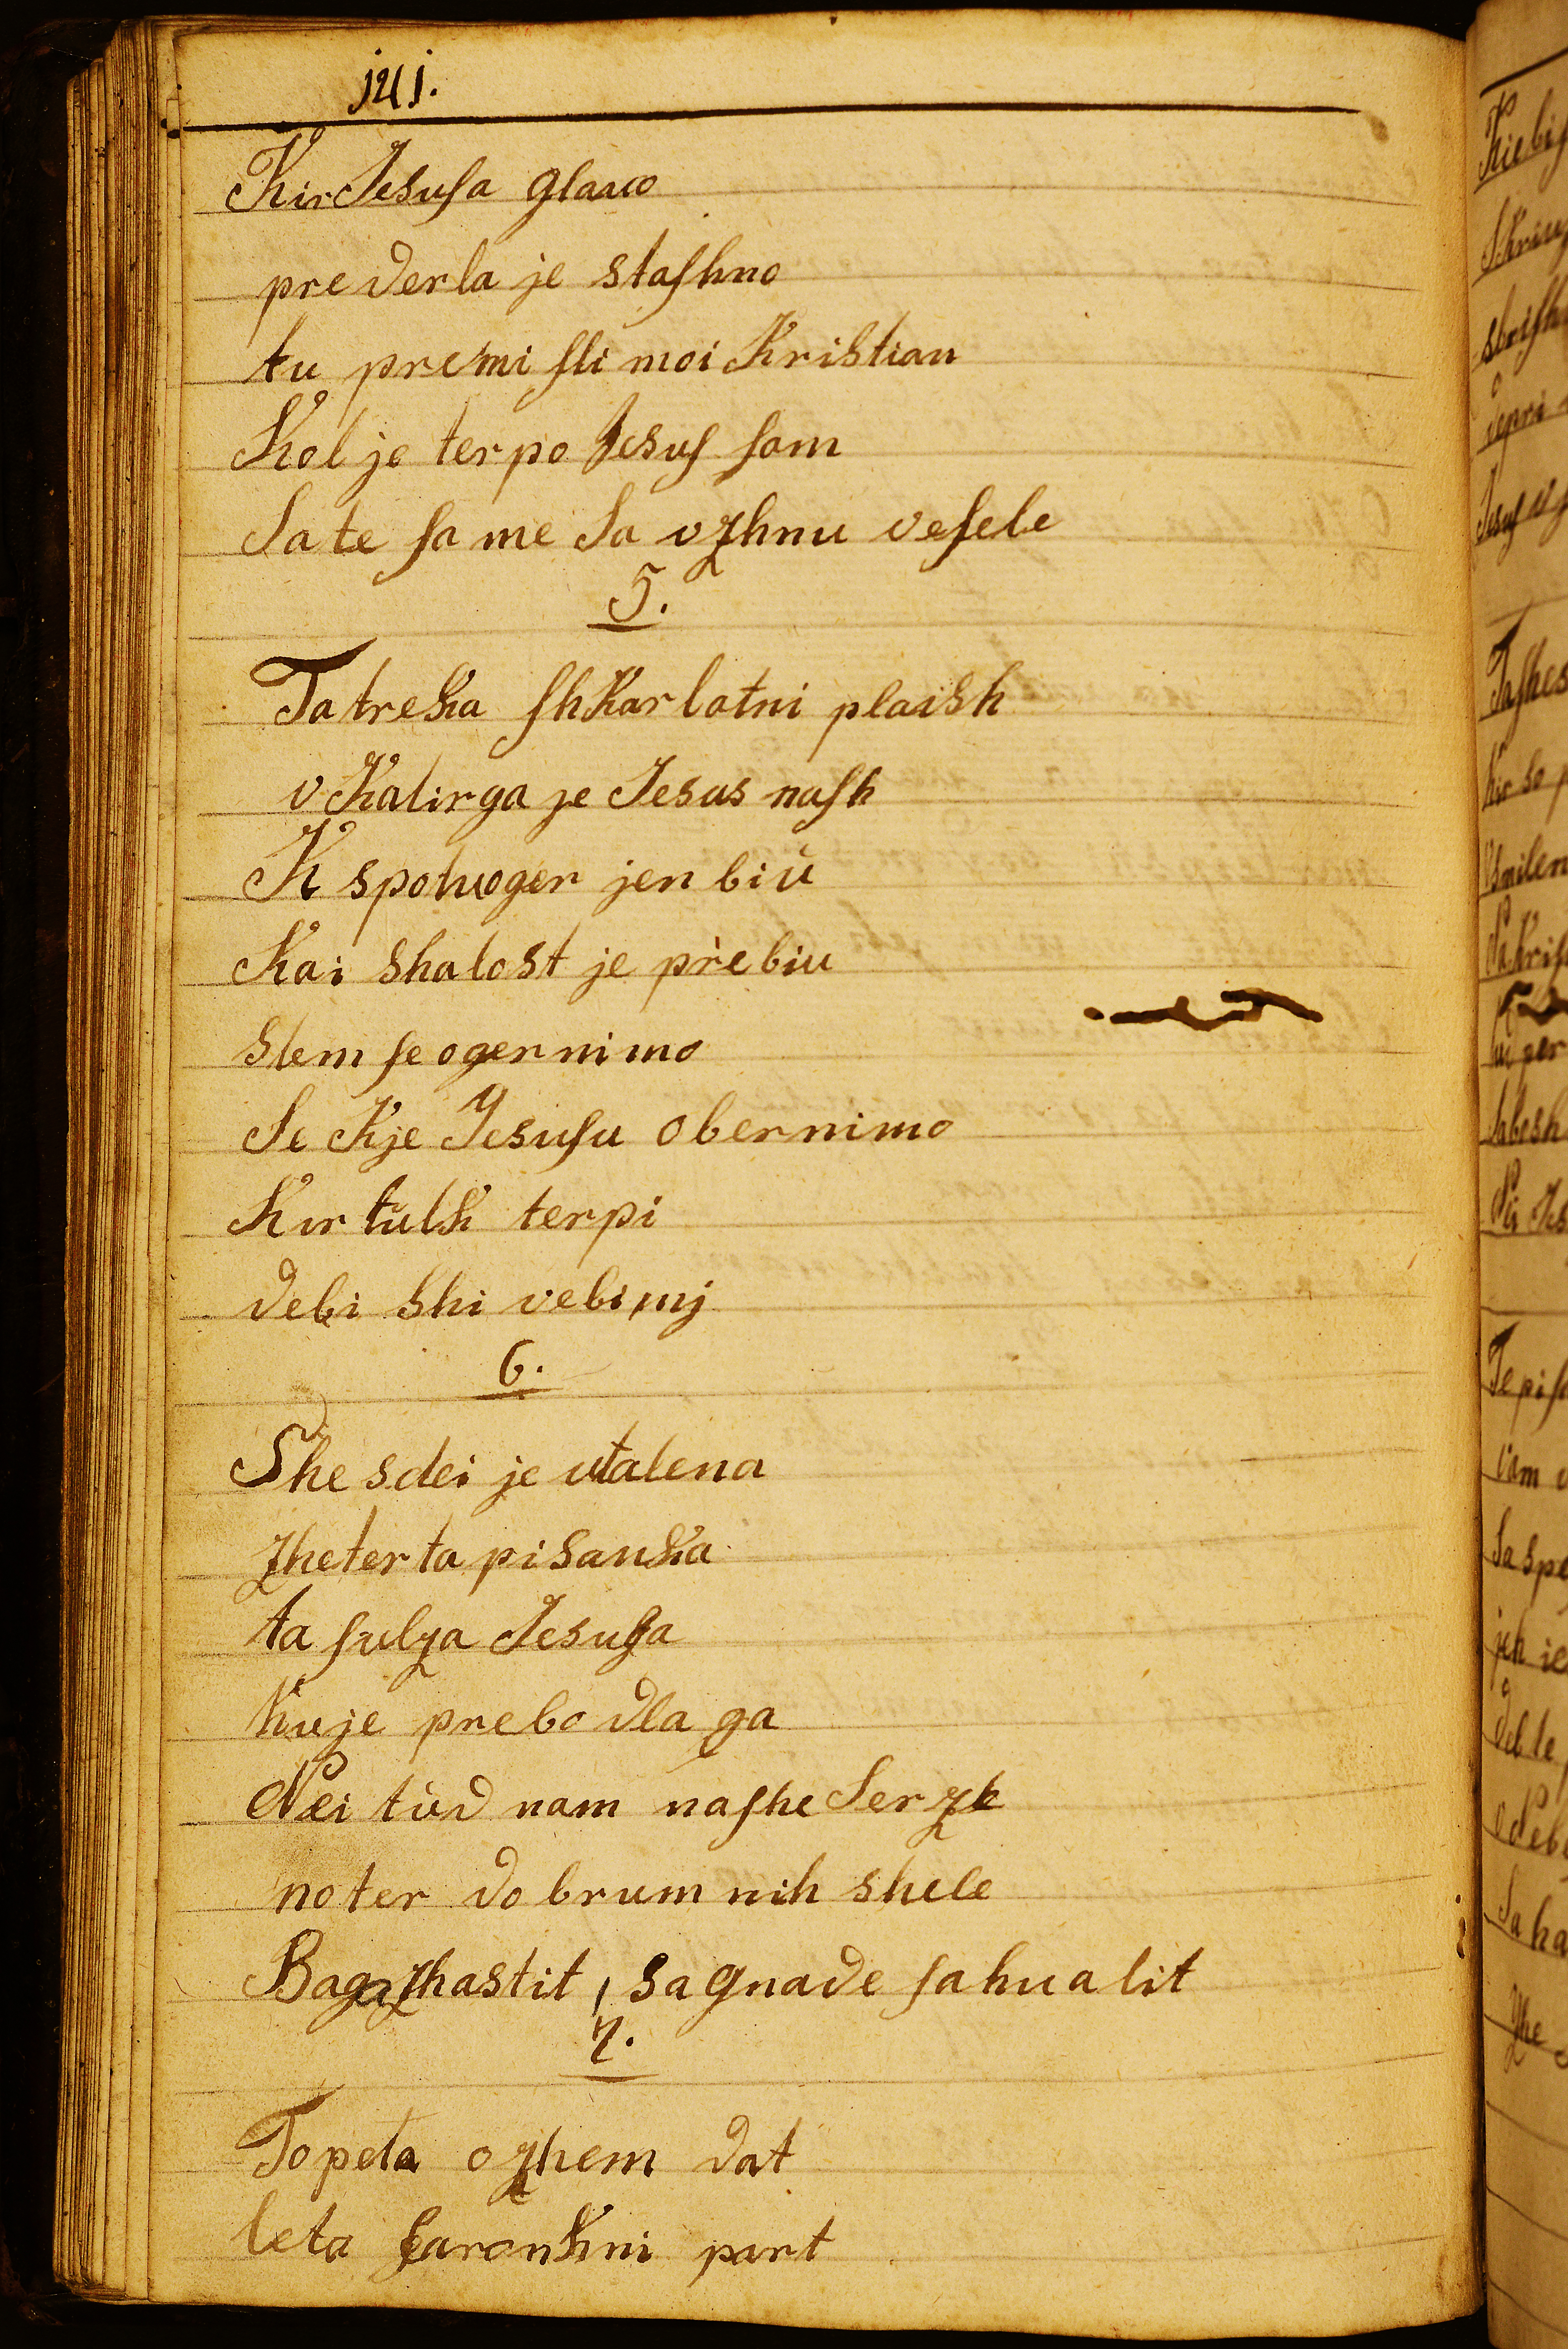 141.
Kir Jesusa glavo
prederla je stashno
tu premisli moi Kristian
Kol je terpo Jesus sam
Sa te same Sa vzhnu vesele
5.
Ta treka shkarlatni plaish
v Kalirga je Jesus nash
K spotuoger jen biu
Kai shalost je prebiu
stem se ogernimo
Se Kje Jesusu obernimo
Kir tulk terpi
debi shi vebimj
6.
She sdei je utalena
zheterta pisanka
ta sulza Jesusa
Ku je prebodla ga
Nei tud nam nashe Serze
noter do brumnih shele
Baga zhastit, sa gnade sahualit
7.
To peta ozhem dat
leta faronkni part